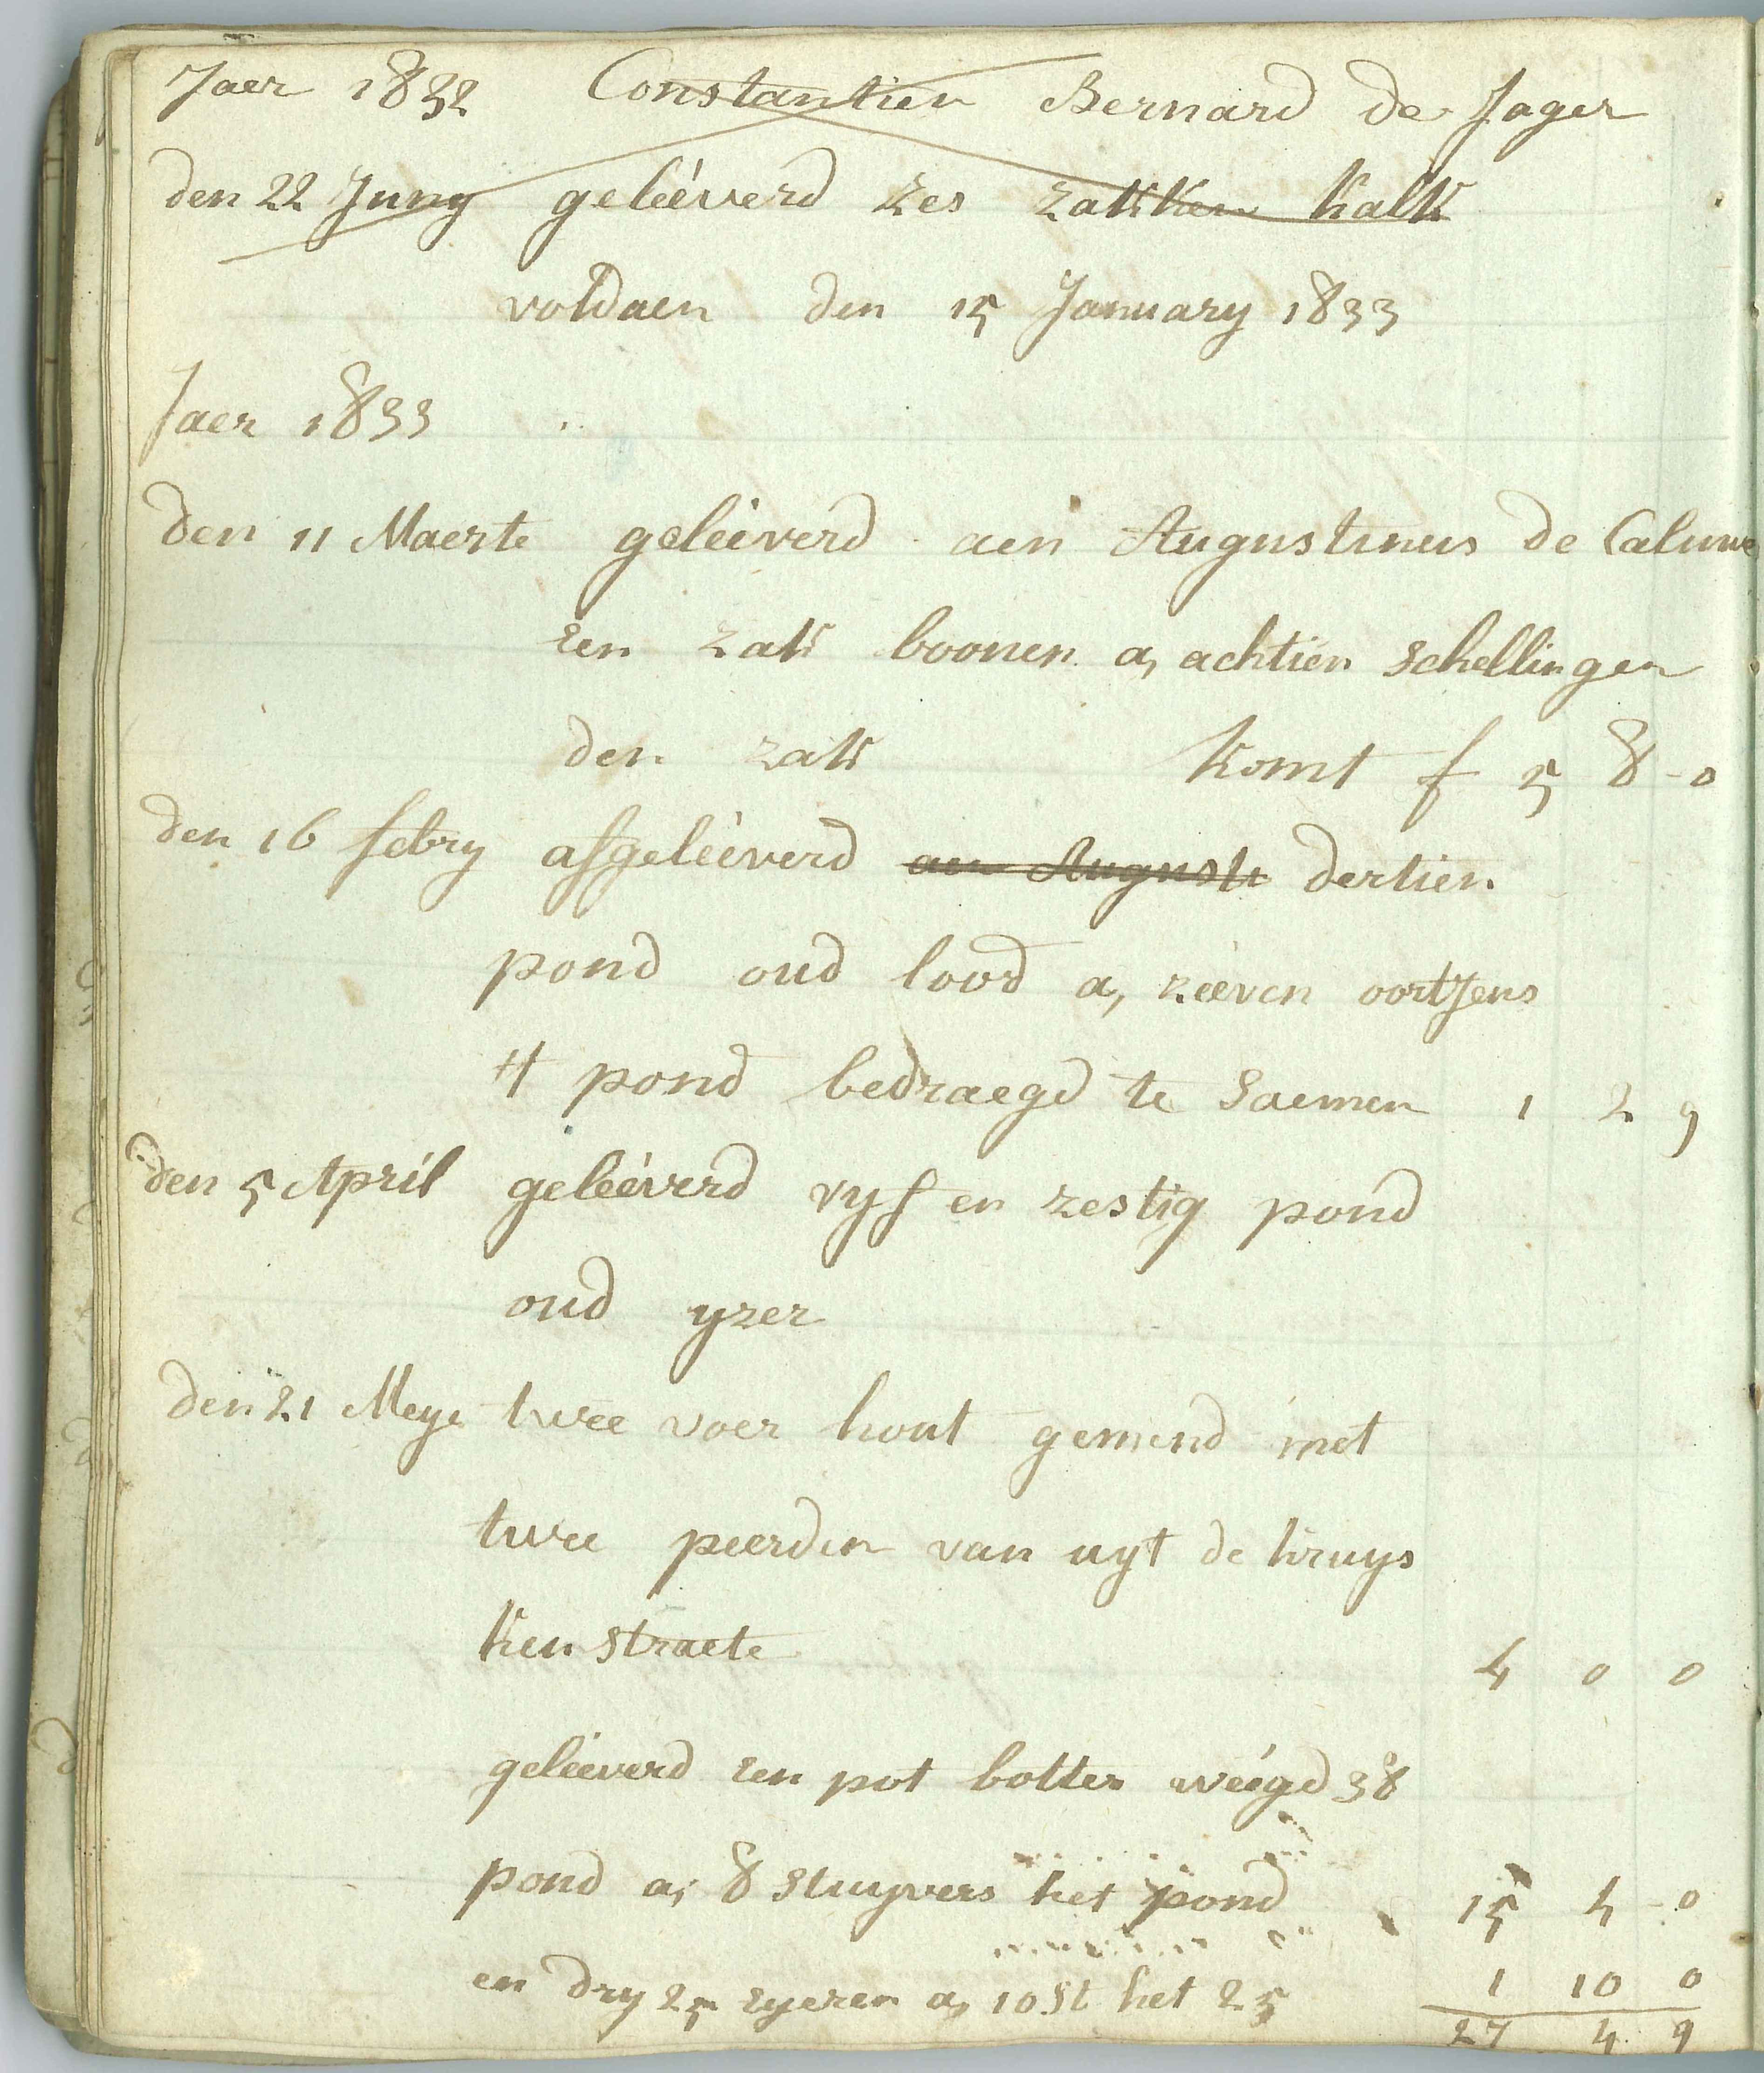 Jaer 1832 Constantien Bernard de Jager
den 22 Juny geléèverd zes zakken kalk
voldaen den 15 January 1833
Jaer 1833
den 11 Maerte geléèverd aen Augustinus de Caluwe
een zak boonen a, achtien schellingen
den zak komt f 5 8 - 0
den 16 febry afgeléèverd aen Augusti dertien
pond oud lood a, zeeven oortjens
H pond bedraegd te saemen 1 2 9
den 5 April geléèverd vyf en zestig pond
oud yzer
den 21 Meye twee voer hout gemend met
twee peerden van uyt de kruys
ken straete 4 0 0
geléèverd een pot botter wéégd 38
pond a, 8 stuyvers het pond 15 4 - 0
en dry 25 eyeren a, 10 st het 25 1 10 0
27 4 9